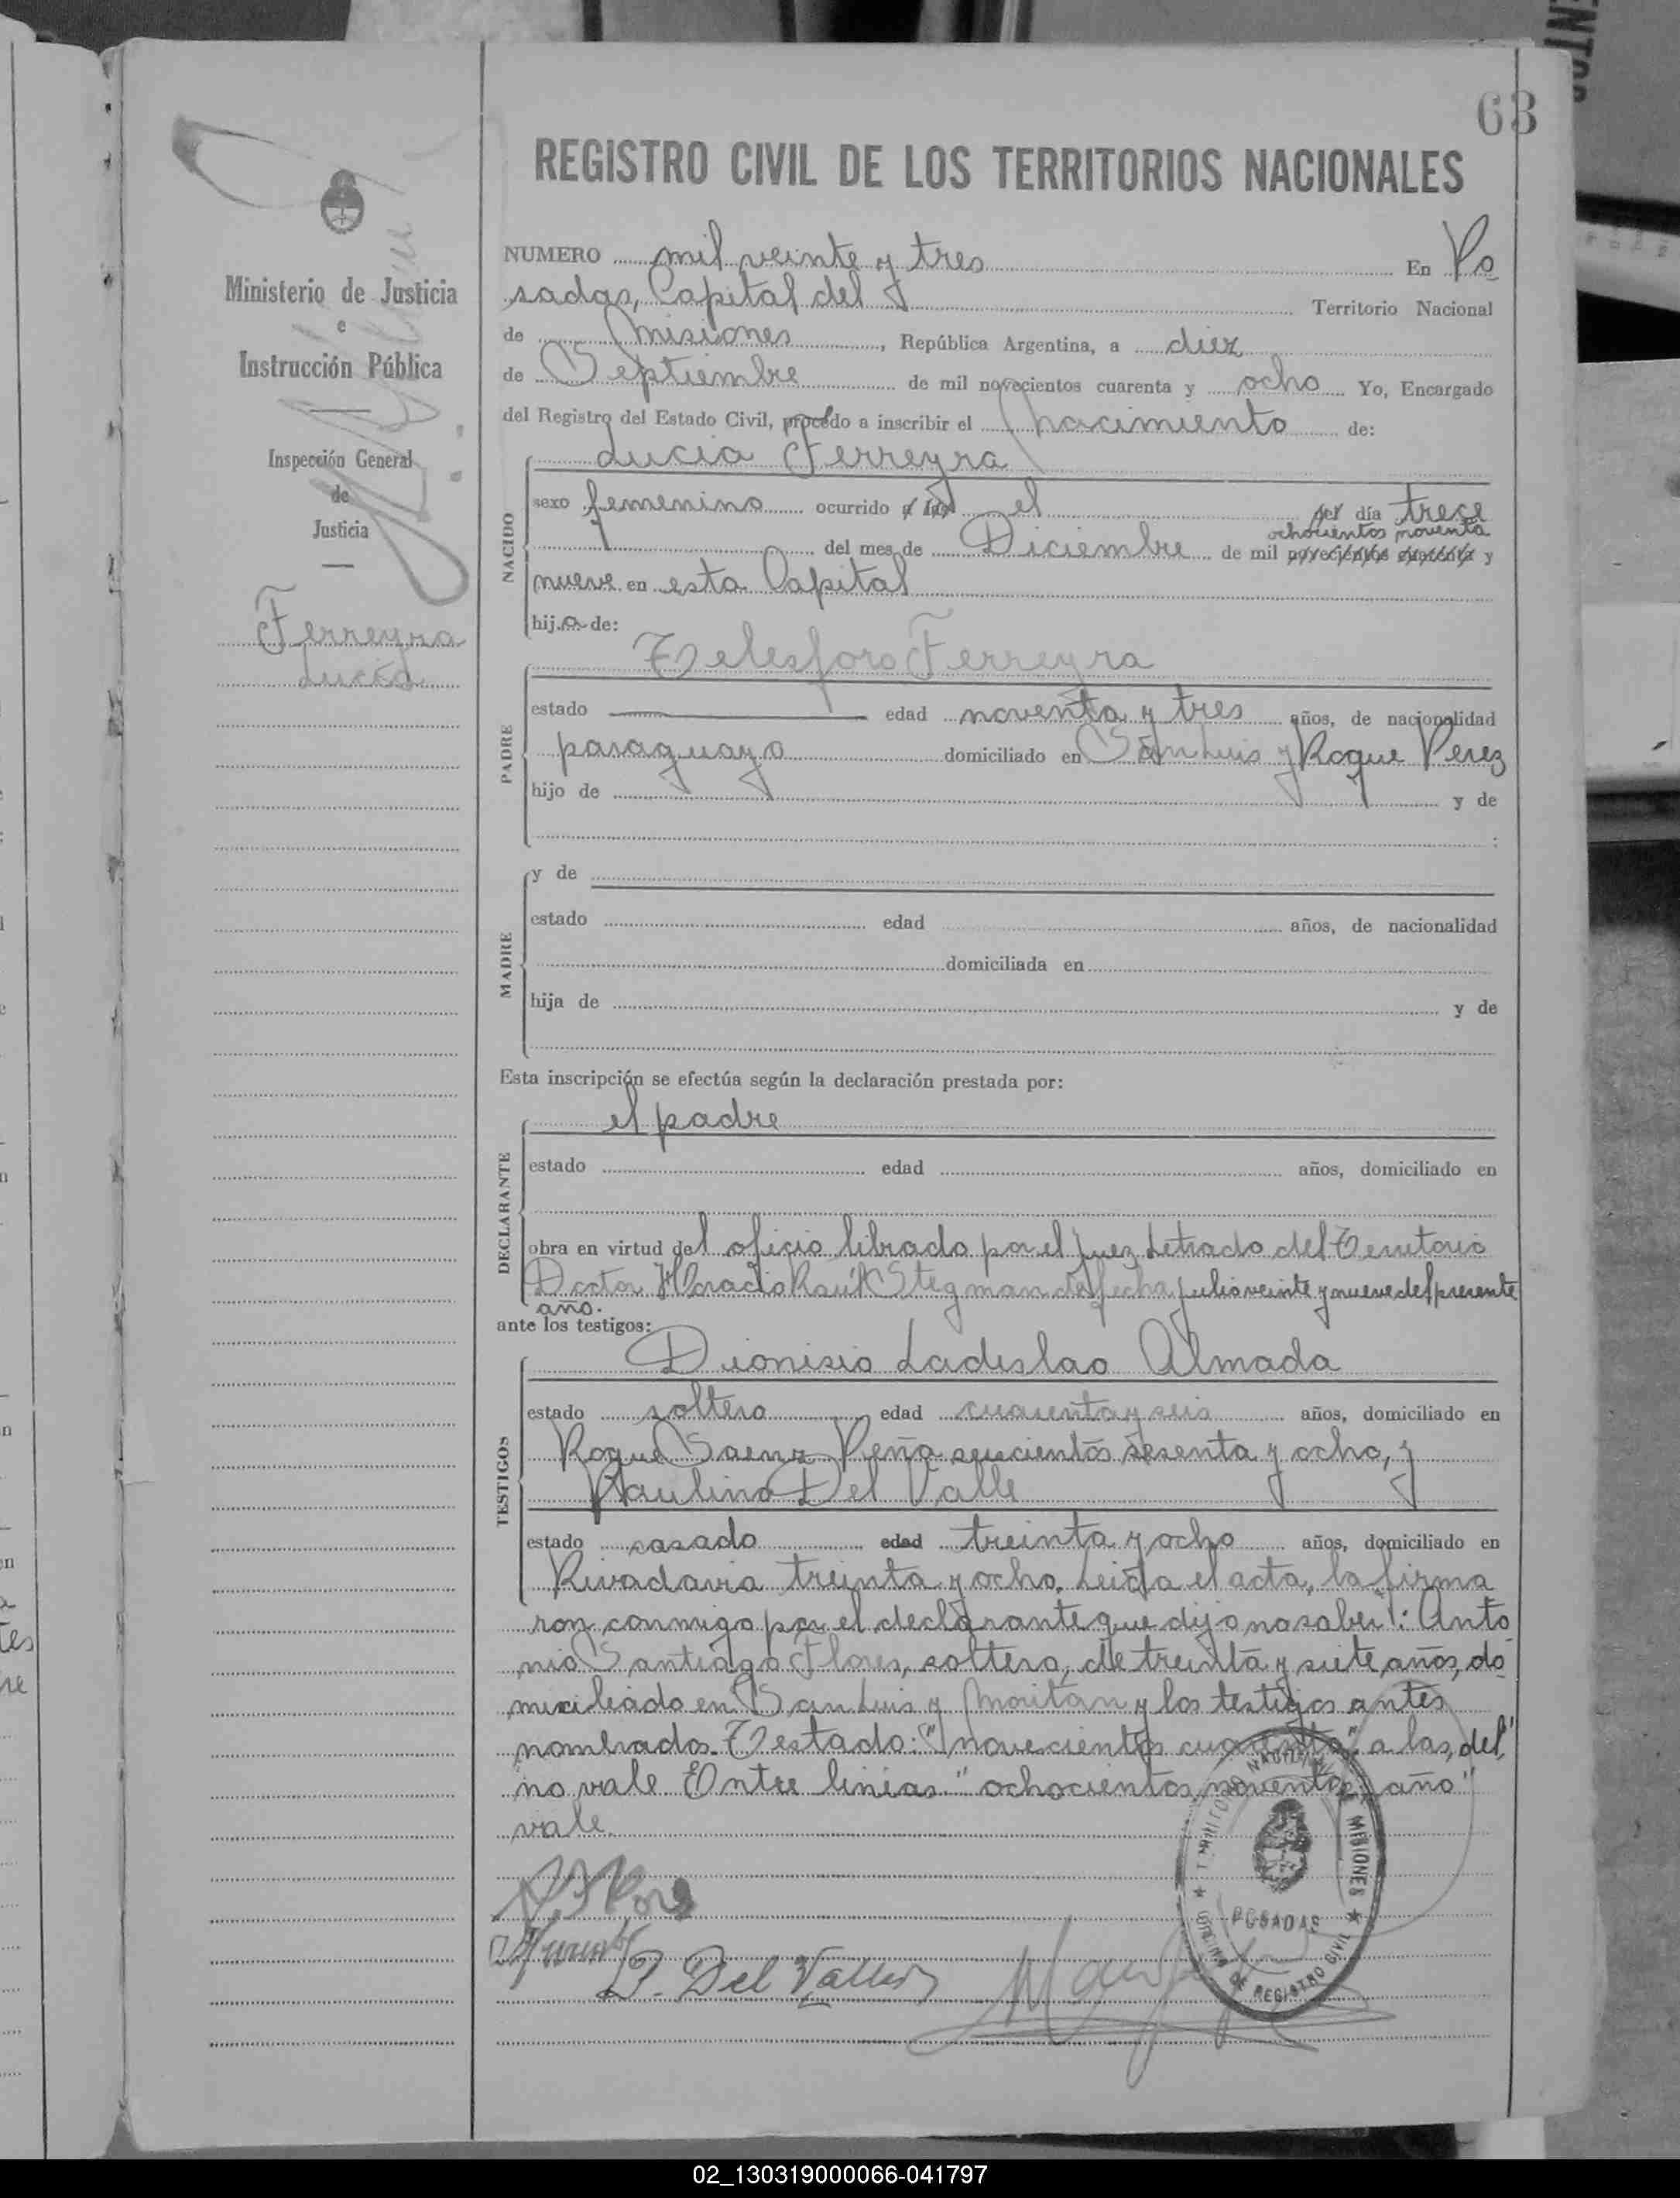 63
REGISTRO CIVIL DE LOS TERRITORIOS NACIONALES
Ministerio de Justicia
e
Instrucción Pública
Inspección General
de
Justicia
Ferreyra
Lucía
NUMERO mil veinte y tres En Po
sadas, Capital del Territorio Nacional
de Misiones, República Argentina, a diez
de Septiembre de mil novecientos cuarenta y ocho Yo, Encargado
del Registro del Estado Civil, procedo a inscribir el nacimiento de:
Lucia Ferreyra
NACIDO
sexo femenino ocurrido a las el del día trece
ochocientos noventa
del mes de Diciembre de mil novecientos cuarenta y
nueve en esta Capital
hija de:
Telesforo Ferreyra
PADRE
estado edad noventa y tres años, de nacionalidad
paraguayo domiciliado en San Luis y Roque Perez
hijo de y de
y de
MADRE
estado edad años, de nacionalidad
domiciliada en
hija de y de
Esta inscripción se efectúa según la declaración prestada por:
el padre
DECLARANTE
estado edad años, domiciliado en
obra en virtud del oficio librado por el Juez Letrado del Territorio
Doctor Horacio Raúl Stegman de fecha julio veinte y nueve del presente
año.
ante los testigos:
Dionisio Ladislao Almada
TESTIGOS
estado soltero edad cuarenta y seis años, domiciliado en
Roque Saenz Peña seiscientos sesenta y ocho, y
Paulino Del Valle
estado casado edad treinta y ocho años, domiciliado en
Rivadavia treinta y ocho. Leida el acta, la firma
ron conmigo por el declarante que dijo no saber: Anto
nio Santiago Flores, soltero, de treinta y siete años, do
miciliado en San Luis y Moritán y los testigos antes
nombrados. Testado: "novecientos cuarenta" a las, del,
no vale Entre linias "ochocientos noventa; año"
vale.
P. Del Valle
TERRITORIO NACIONAL DE MISIONES
POSADAS
OFICINA DE REGISTRO CIVIL
02_130319000066-041797